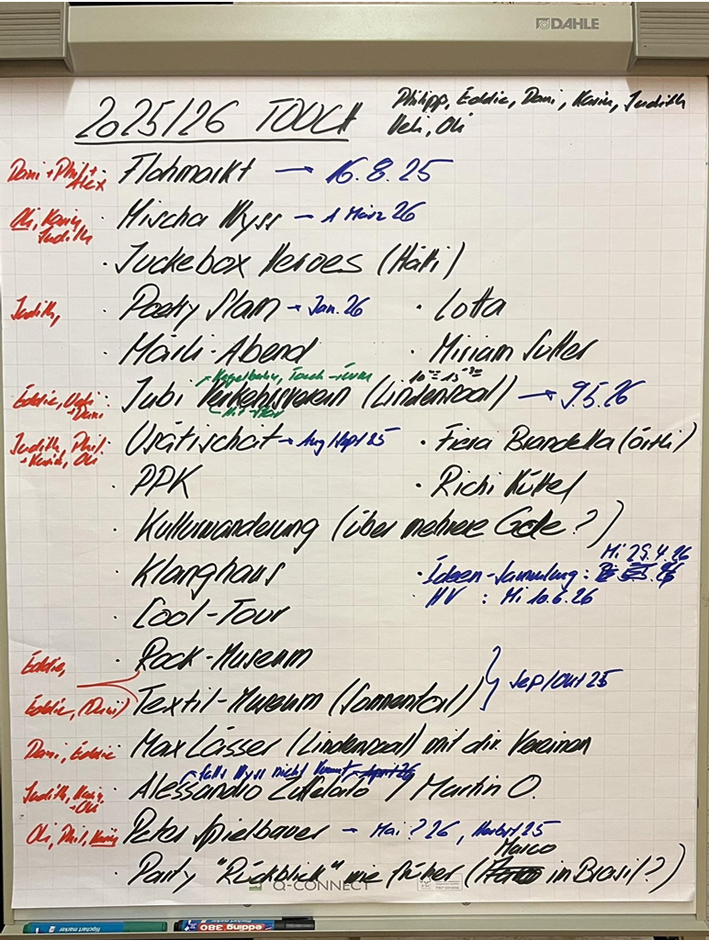 DAHLE
2025/26 TOUCH
Philipp, Eddie, Dani, Karin, Judith
Ueli, Oli
Dani + Phil + Alex
Flohmarkt → 16.8.25
Oli, Karin, Judith
Mischa Wyss → 1 März 26
· Juckebox Heroes (Häti)
Judith,
· Poetry Slam → Jan. 26
· Lotta
· Märli-Abend
· Miriam Sutter
Kegelbahn, Touch-
Eddie, Ueli + Dani
· Jubi Verkehrsverein (Lindensaal) → 9.5.26
Judith, Phil. + Karin, Oli
· Urätischät → Aug/Sept 25
· Fiera Brandella (örtli)
· PPK
· Richi Küttel
· Kulturwanderung (über mehrere ?)
· Klanghaus
· Ideen-Sammlung: Mi 29.4.26
HV : Mi 10.6.26
· Cool-Tour
Eddie,
· Rock-Museum
Sep/Okt 25
Eddie, (Dani)
Textil-Museum (Sonnental)
Dani, Eddie
· Max Lässer (Lindensaal) mit div. Vereinen
falls Wyss nicht kommt April 26
Judith, Karin, + Oli
· Alessandro / Martin O.
Oli, Phil, Karin
· Peter Spielbauer → Mai ? 26, Herbst 25
· Party "Rückblick" wie früher (Marco in Brasil?)
Q-CONNECT
flipchart marker
edding 380
flipchart marker